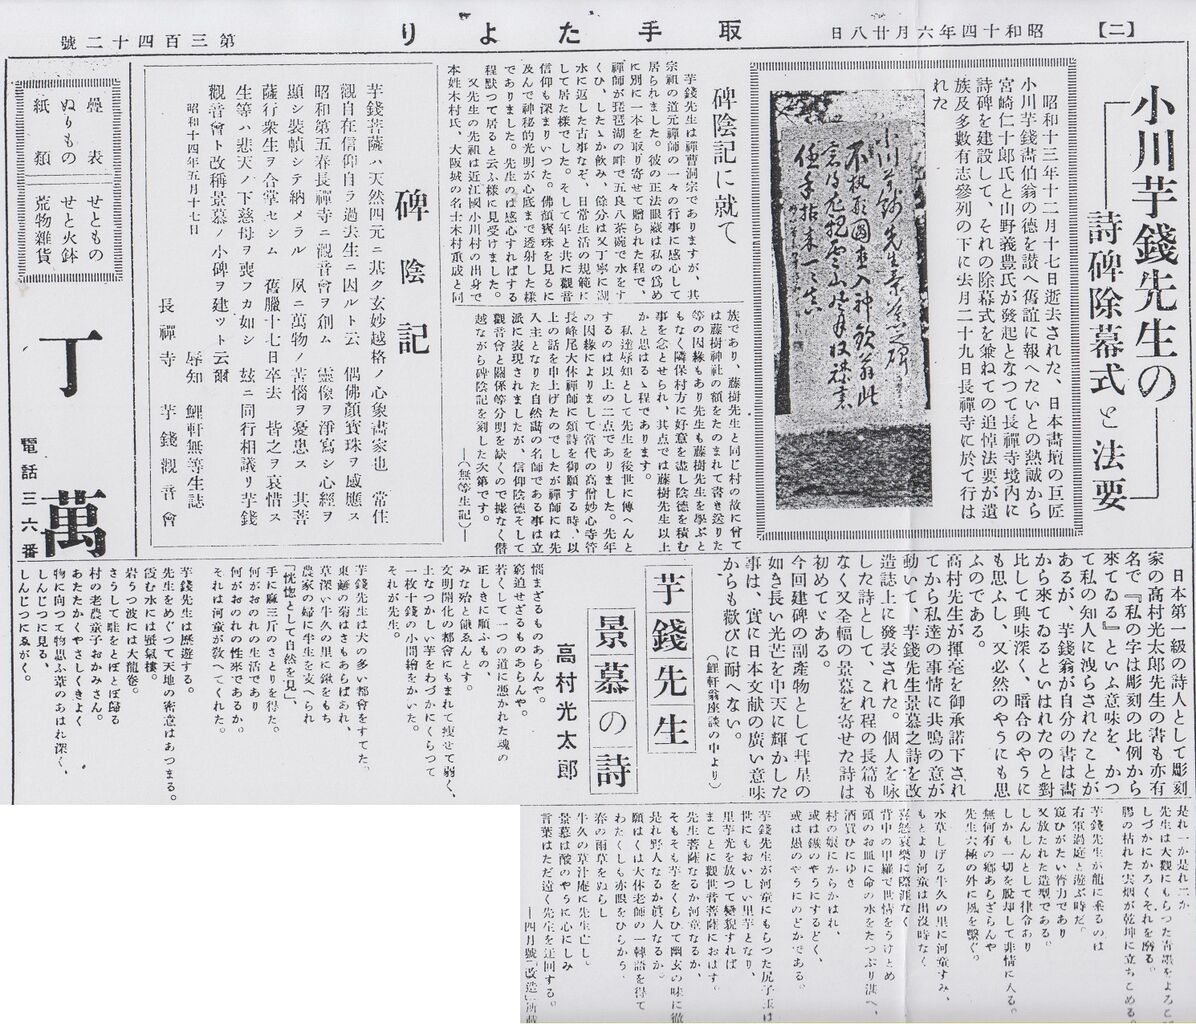 【二】
昭和十四年六月廿八日
取手たより
第三百四十二號
小川芋錢先生の
詩碑除幕式と法要
昭和十三年十二月十七日逝去された、日本畵壇の巨匠
小川芋錢畵伯翁の德を讃へ舊誼に報へたいとの熱誠から
宮崎仁十郎氏と山野義豊氏が發起となつて長禪寺境内に
詩碑を建設して、それの除幕式を兼ねての追悼法要が遺
族及多數有志參列の下に去月二十九日長禪寺に於て行は
れた
小川芋錢先生景慕之碑
碑陰記に就て
芋錢先生は禪曹洞宗でありますが、其
宗祖の道元禪師の一々の行事に感心して
居られました。彼の正法眼藏は私の爲め
に別に一本を取り寄せて贈られた程で、
禪師が琵琶湖の畔で五良八茶碗で水をす
くひ、したゝか飮み、餘分は又丁寧に湖
水に返した古事なぞ、日常生活の規範に
して居た樣でした。そして年と共に觀音
信仰も深まりいつた。佛顏寳珠を見るに
及んで神秘的光明が心底まで透射した樣
でありました。先生のは感心すればする
程默つて居ると云ふ樣に見受けました。
又先生の先祖は近江國小川村の出身で
本姓木村氏、大阪城の名士木村重成と同
族であり、藤樹先生と同じ村の故に曾て
は藤樹神社の額をたのまれて書き送りた
等の因緣もあり先生も藤樹先生を學ぶと
もなく隣保村方に好意を盡し陰德を積む
事を念とせられ、其点では藤樹先生以上
かと思はるゝ程であります。
私達辱知として先生を後世に傳へんと
するのは以上の二点でありました。先年
の因緣によりまして當代の高僧妙心寺管
長峰尾大休禪師に頌詩を御願する時、以
上の話を申上げたのでしたが禪師には先
入主となりた自然識の名師である事は立
派に表現されましたが、信仰陰德そして
觀音會と關係等分明を缺くので據なく僭
越ながら碑陰記を刻した次第です。
―(無等生記)―
碑陰記
芋錢菩薩ハ天然四元ニ基ク玄妙越格ノ心象畵家也 常住
觀自在信仰自ラ過去生ニ因ルト云 偶佛顏寳珠ヲ感應ス
昭和第五春長禪寺ニ觀音會ヲ創ム 靈像ヲ淨寫シ心經ヲ
顯シ裝幀シテ納メラル 夙ニ萬物ノ苦惱ヲ憂患ス 其菩
薩行衆生ヲ合堂セシム 舊臘十七日卒去 皆之ヲ哀惜ス
生等ハ悲天ノ下慈母ヲ喪フカ如シ 玆ニ同行相議リ芋錢
觀音會ト改稱景慕ノ小碑ヲ建ツト云爾
昭和十四年五月十七日
辱知 鯉軒無等生誌
長禪寺 芋錢觀音會
疊表
ぬりもの
紙類
せともの
せと火鉢
荒物雜貨
丁萬
電話三六番
日本第一級の詩人として彫刻
家の高村光太郎先生の書も亦有
名で『私の字は彫刻の比例から
來てゐる』といふ意味を、かつ
て私の知人に洩らされたことが
あるが、芋錢翁が自分の書は畵
から來てゐるといはれたのと對
比して興味深く、暗合のやうに
も思ふし、又必然のやうにも思
ふのである。
高村先生が揮毫を御承諾下され
てから私達の事情に共鳴の意が
動いて、芋錢先生景慕之詩を改
造誌上に發表された。個人を咏
した詩として、これ程の長篇も
なく又全幅の景慕を寄せた詩は
初めてゞある。
今回建碑の副產物として彗星の
如き長い光芒を中天に輝かした
事は、實に日本文献の廣い意味
からも歡びに耐へない。
(鯉軒翁座談の中より)
芋錢先生
景慕の詩
高村光太郎
惱まざるものあらんや。
窮迫せざるものあらんや。
若くして一つの道に憑かれた魂の
正しきに順ふもの、
みな殆と餓ゑんとす。
文明開化の都會にもまれて痩せて弱く、
土なつかしい芋をわづかにくらつて
一枚十錢の小間繪をかいた。
それが先生。
芋錢先生は犬の多い都會をすてた。
東籬の菊はさもあらばあれ、
草深い牛久の里に鍬をもち
農家の婦に半生を支へられ
「恍惚として自然を見」、
手に麻三斤のさとりを得た。
何がおのれの生活であり
何がおのれの性來であるか。
それは河童が敎へてくれた。
芋錢先生は歷遊する。
先生をめぐつて天地の密意はあつまる。
霞む水には蜃氣樓。
岩うつ波には大龍卷。
さうして畦をとぼとぼ歸る
村の老農童子おかみさん。
あたたかくやさしくきよく
物に向つて物思ふ葦のあはれ深く、
しんじつに見る、
しんじつにゑがく。
是れ一か是れ二か
先生は大觀にもらつた靑墨をよろこび
しづかにかろくそれを磨る。
膠の枯れた雲烟が乾坤に立ちこめる。
芋錢先生が龍に乘るのは
右軍過庭と遊ぶ時だ。
寛ひがたい膂力であり
又放たれた造型である。
しんしんとして律令あり
しかも一切を脱却して非情に入る。
無何有の郷あらざらんや
先生六極の外に風を繫ぐ。
水草しげる牛久の里に河童すみ、
もとより河童は出沒時なく
喜怒哀樂に際涯なく
背中の甲羅で世情をうけとめ
頭のお皿に命の水をたつぷり湛へ、
酒買ひにゆき
村の娘にからかはれ、
或は鏃のやうにするどく、
或は愚のやうにのどかである。
芋錢先生が河童にもらつた尻子玉は
世にもおいしい里芋となり、
里芋光を放つて變貌すれば
まことに觀世音菩薩におはす。
先生菩薩なるか河童なるか、
そもそも芋をくらひて幽玄の味に徹し
是れ野人なるか眞人なるか。
願はくは大休老師の一轉語を得て
わたくしも亦眼をひらかう。
春の雨草をぬらし
牛久の草汁庵に先生亡し。
景慕は酸のやうに心にしみ
言葉はただ遠く先生を迂回する。
―四月號「改造」所載